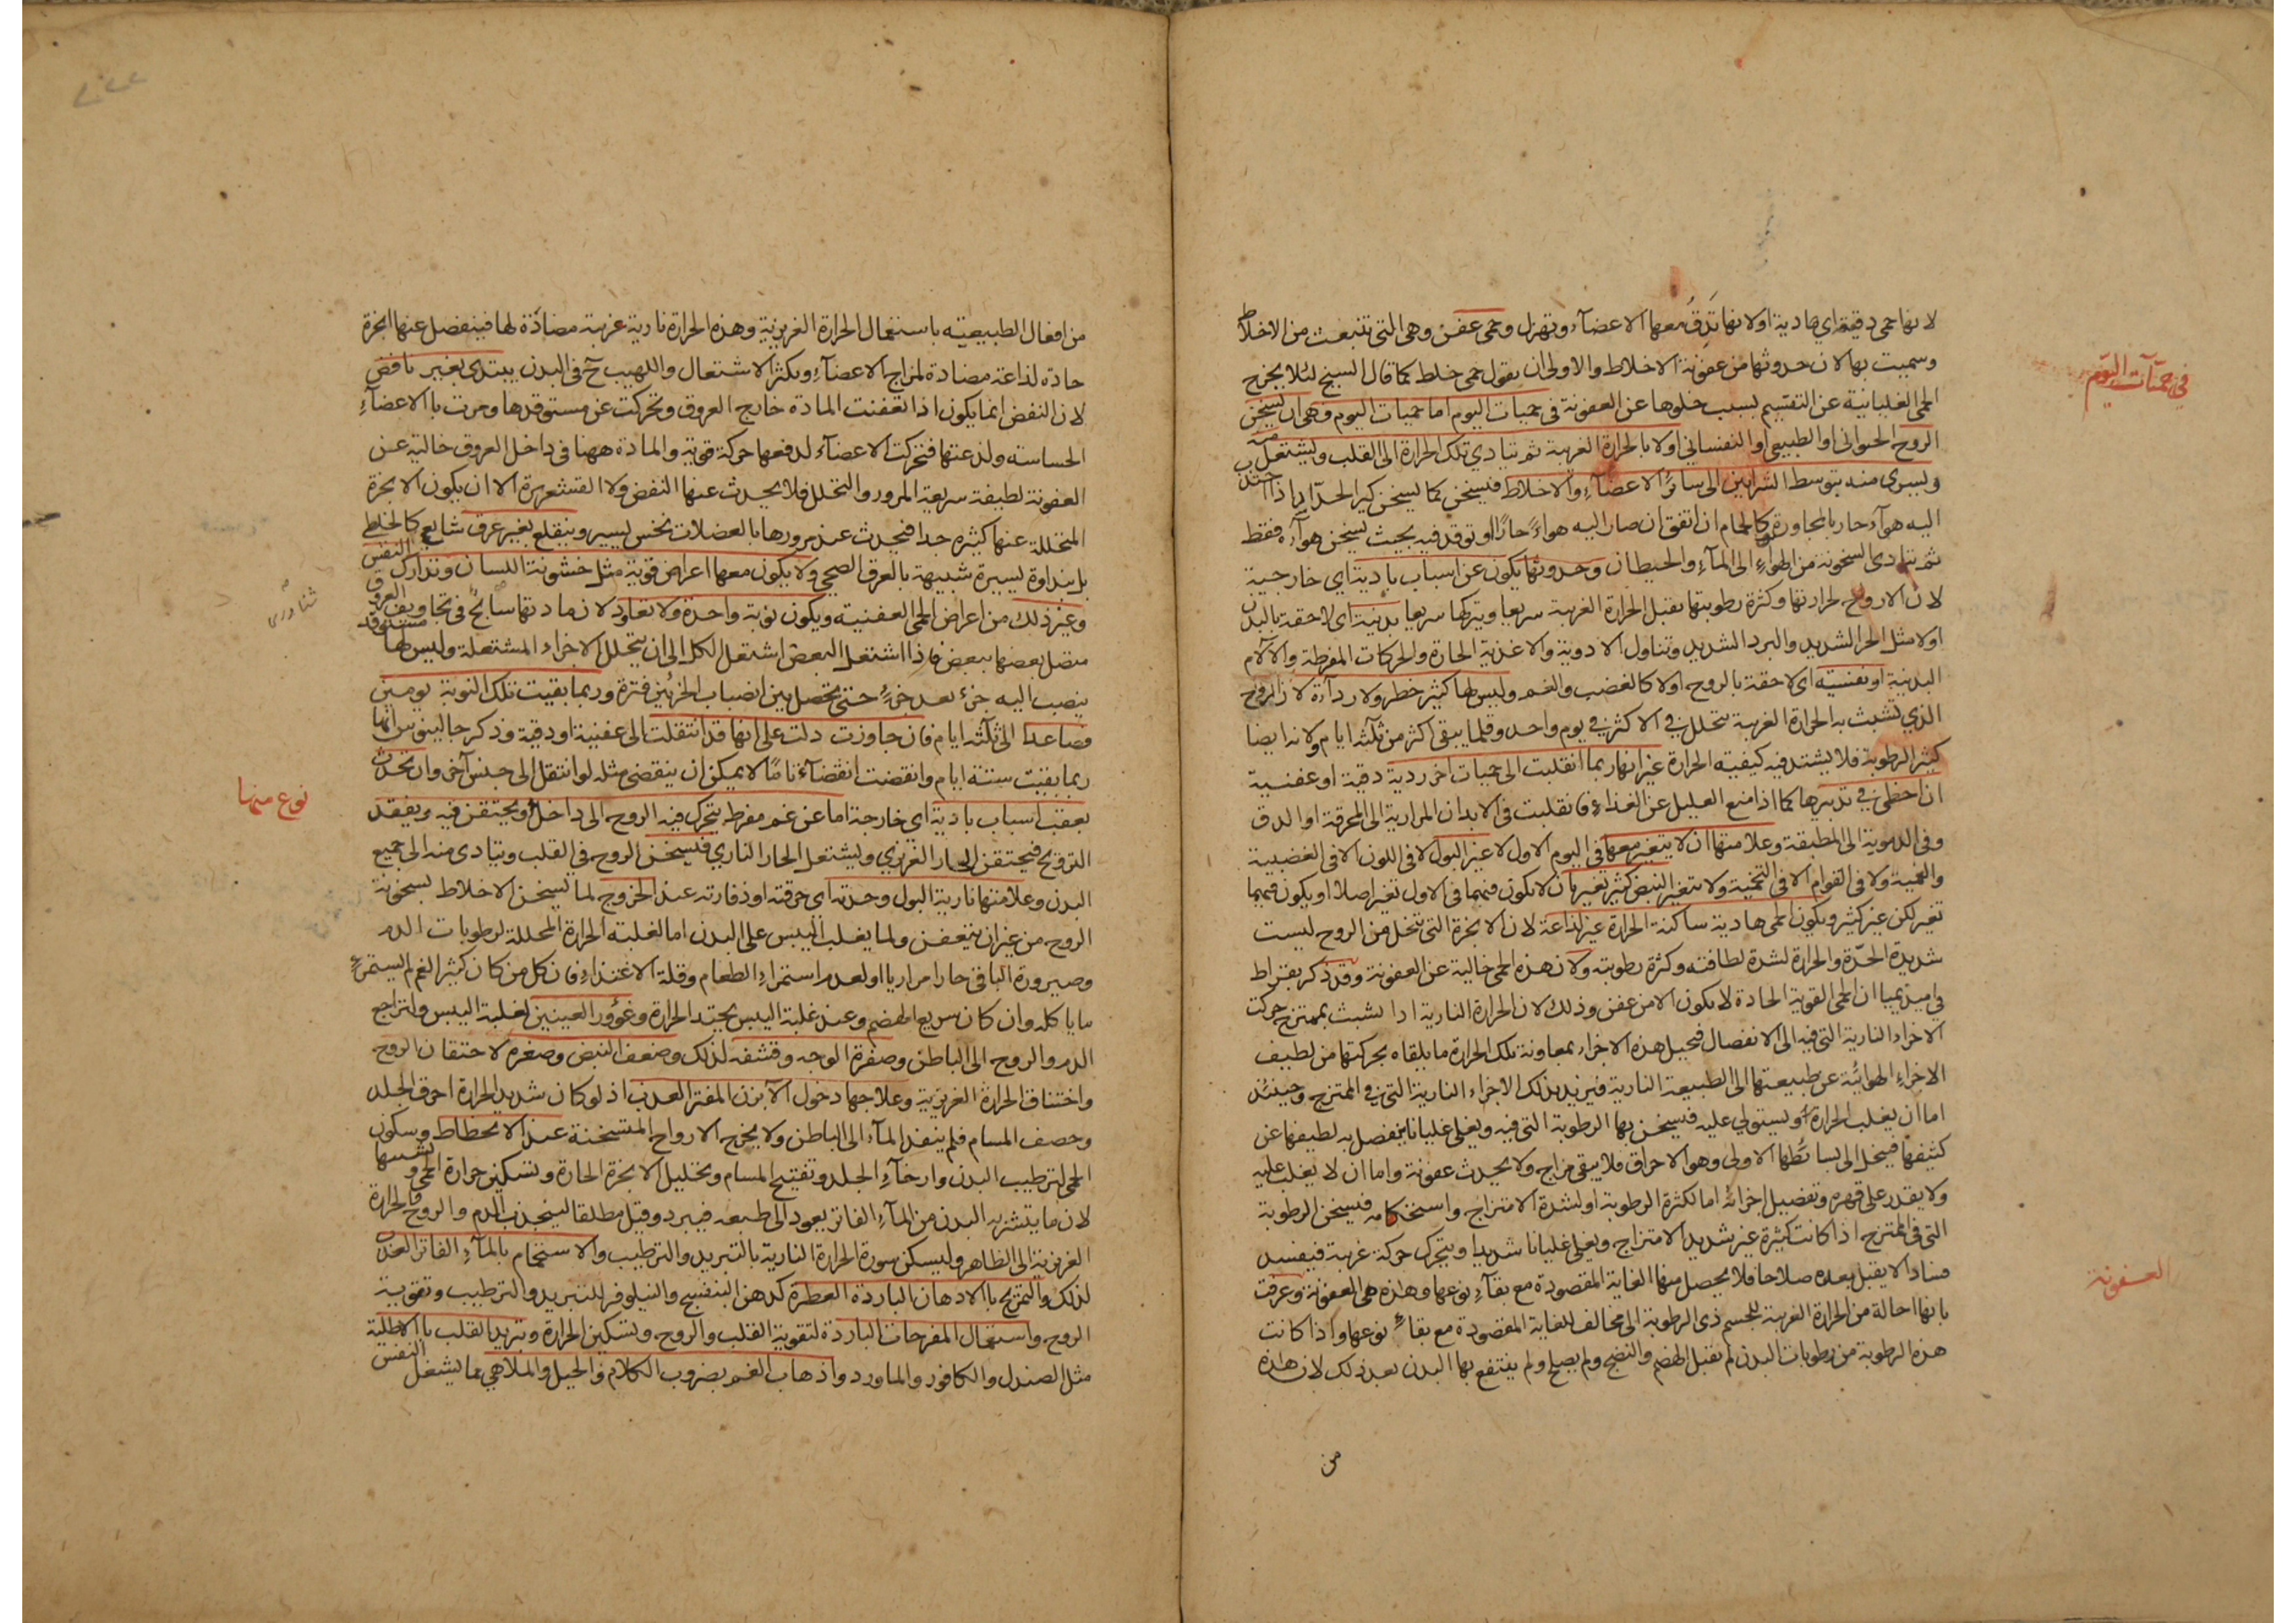 لانها حمى دقيقة اي هادية اولانها تدق معها الاعضآء وتهزل وحمى عفن وهى التى تنبعث من الاخلاط
وسميت بها لان حدوثها من عفونة الاخلاط والاولى ان يقول حمى خلط كما قال الشيخ لئلا يخرج
الحمى الغليانية عن التقسيم بسبب خلوها عن العفونة فى حميات اليوم اما حميات اليوم فهى ان يسخن
الروح الحيوانى او الطبيعى او النفسانى اولا بالحرارة الغريبة ثم يتادي تلك الحرارة الى القلب ويشتعل
ويسرى منه بتوسط الشرايين الى سائر الاعضآء والاخلاط فيسخن كما يسخن كير الحداد اذا
اليه هوآء حار بالمجاورة وكالحمام ان اتفق ان صار اليه هواءً حارًا او توقد فيه بحيث يسخن هوآءه فقط
ثم يتادى السخونة من الهواءِ الى المآءِ والحيطان وحدوثها يكون عن اسباب بادية اي خارجية
لان الارواح لحرارتها وكثرة رطوبتها يقبل الحرارة الغريبة سريعا ويتركها سريعا بدنية اى لاحقة بالبدن
اولا مثل الحر الشديد والبرد الشديد وتناول الادوية والاغذية الحارة والحركات المفرطة والآلام
البدنية او نفسية اى لاحقة بالروح اولا كالغضب والغم وليس لها كثير خطر ولا ردآءة لان الروح
الذي تشبث به الحرارة الغريبة يتحلل في الاكثر في يوم واحد وقلما يبقى اكثر من ثلثة ايام ولانه ايضا
كثير الرطوبة فلا يشتد فيه كيفية الحرارة غير انها ربما انقلبت الى حميات اخر ردية دقية او عفنية
ان اخطئ في تدبيرها كما اذا منع العليل عن الغذاءِ فانقلبت فى الابدان المرارية الى المحرقة او الدق
وفى الدموية الى المطبقة وعلامتها ان لا يتغير معها فى اليوم الاول لا عير البول لا فى اللون الا فى الغضبية
والغمية ولا فى القوام الا فى التخمية ولا يتغير النبض كثير تغير بان لا يكون فيهما فى الاول تغير اصلا او يكون فيهما
تغير لكن غير كثير ويكون الحمى هادية ساكنة الحرارة غير لذاعة لان الابخرة التى تتحل من الروح ليست
شديدة الحدّة والحرارة لشدة لطافته وكثرة رطوبته ولان هذه الحمى خالية عن العفونة وقد ذكر بقراط
في ابيذيميا ان الحمى القوية الحادة لا يكون الا من عفن وذلك لان الحرارة النارية اذا تشبث بممتزج حركت
الاجزاء النارية التى فيه الى الانفصال فيحيل هذه الاجزاء بمعاونة تلك الحرارة ما يلقاه بحركتها من لطيف
الاجزاءِ الهوائية عن طبيعتها الى الطبيعة النارية فيزيد بذلك الاجزاء النارية التى في الممتزج وحينئذ
اما ان يغلب الحرارة ويستولي عليه فيسخن بها الرطوبة التى فيه ويغلى غليانا ينفصل به لطيفها عن
كثيفها فيتحل الى بسائطها الاولى وهو الاحراق فلا يبقى مزاج ولا يحدث عفونة واما ان لا يغلب عليه
ولا يقدر على قهره وتفصيل اجزائه اما لكثرة الرطوبة او لشدة الامتزاج واستحكامه فيسخن الرطوبة
التى فى الممتزج اذا كانت كثيرة غير شديد الامتزاج ويغلى غليانا شديدا ويتحرك حركة غريبة فيفسد
فسادا لا يقبل بعده صلاحا فلا يحصل منها الغاية المقصودة مع بقآءِ نوعها وهذه هى العفونة وعرفت
بانها احالة من الحرارة الغريبة للجسم ذى الرطوبة الى مخالف للغاية المقصودة مع بقاءِ نوعها واذا كانت
هذه الرطوبة من رطوبات البدن لم تقبل الهضم والنضج ولم يصلح ولم ينتفع بها البدن بعد ذلك لان هذه
من
في حميّات اليوم
العفونة
من افعال الطبيعية باستعمال الحرارة الغريزية وهذه الحرارة نارية غريبة مضادّة لها فينفصل عنها ابخرة
حادة لذاعة مضادة لمزاج الاعضآءِ ويكثر الاشتعال واللهيب حَ فى البدن يبتدى بغير نافض
لان النفض انما يكون اذا تعفنت المادة خارج العروق وتحركت عن مستوقدها ومرت بالاعضآءِ
الحساسة ولذعتها فتحركت الاعضآء لدفعها حركة قوية والمادة ههنا فى داخل العروق خالية عن
العفونة لطيفة سريعة المرور والتحلل فلا يحدث عنها النفض ولا القشعريرة الا ان يكون الابخرة
المتحللة عنها كثيرة جدا فيحدث عند مرورها بالعضلات نخس يسير وينقلع بغير عرق شايع كالخلطى
بل بنداوة يسيرة شبيهة بالعرق الصحى ولا يكون معها اعراض قوية مثل خشونة اللسان وتدارك النفس
وغير ذلك من اعراض الحمى العفنية ويكون نوبة واحدة ولا تعاود لان مادتها سابح فى تجاويف العروق
متصل بعضها ببعض فاذا اشتعل البعض اشتعل الكل الى ان يتحلل الاجزاء المشتعلة وليس لها مستوقد
ينصب اليه جزء بعد جزءٍ حتى يحصل بين انصباب الجزئين فترة وربما بقيت تلك النوبة يومين
فصاعدا الى ثلثة ايام فان جاوزت دلت على انها قد انتقلت الى عفنية او دقية وذكر جالينوس انها
ربما بقيت ستة ايام وانقضت انقضآءً تامًا لا يمكن ان ينقضى مثله لو انتقل الى جنس آخر وان تحدث
بعقب اسباب بادية اي خارجة اما عن غم مفرط يتحرك فيه الروح الى داخل ويحتقن فيه ويفقد
الترويح فيحتقن الحار الغريزي ويشتعل الحار الناري فيسخن الروح في القلب ويتادى منه الى جميع
البدن وعلامتها نارية البول وحدته اى حرقته او ذفارته عند الخروج لما يسخن الاخلاط بسخونة
الروح من غير ان يتعفن ولما يغلب اليبس على البدن اما لغلبة الحرارة المحللة لرطوبات الدم
وصيرورة الباقى حارا مراريا او لعدم استمراءِ الطعام وقلة الاغتذاءِ فان كل من كان كثير الغم لم يستمرءِ
ما ياكله وان كان سريع الهضم وعند غلبة اليبس يحتد الحرارة وغؤور العينين لغلبة اليبس ولتراجع
الدم والروح الى الباطن وصفرة الوجه وقشفه لذلك وضعف النبض وصغره لاحتقان الروح
واختناق الحرارة الغريزية وعلاجها دخول الآبزن المفتر العذب اذ لو كان شديد الحرارة احرق الجلد
وحصف المسام فلم ينفذ المآء الى الباطن ولا يخرج الارواح المتسخنة عند الانحطاط وسكون
الحمى لترطيب البدن وارخآءِ الجلد وتفتيح المسام وتحليل الابخرة الحارة وتسكين حرارة الحمى
لان ما يتشربه البدن من المآءِ الفاتر يعود الى طبعه فيبرد وقيل مطلقا لينجذب الدم والروح والحرارة
الغريزية الى الظاهر وليسكن سورة الحرارة النارية بالتبريد والترطيب والاستحمام بالمآءِ الفاتر العذب
لذلك والتمريخ بالادهان الباردة العطرة كدهن البنفسج والنيلوفر للتبريد والترطيب وتقوية
الروح واستعمال المفرحات الباردة لتقوية القلب والروح وتسكين الحرارة وتبريد القلب بالاطلية
مثل الصندل والكافور والماورد واذهاب الغم بضروب الكلام والحيل والملاهي مما يشغل النفس
نوع منها